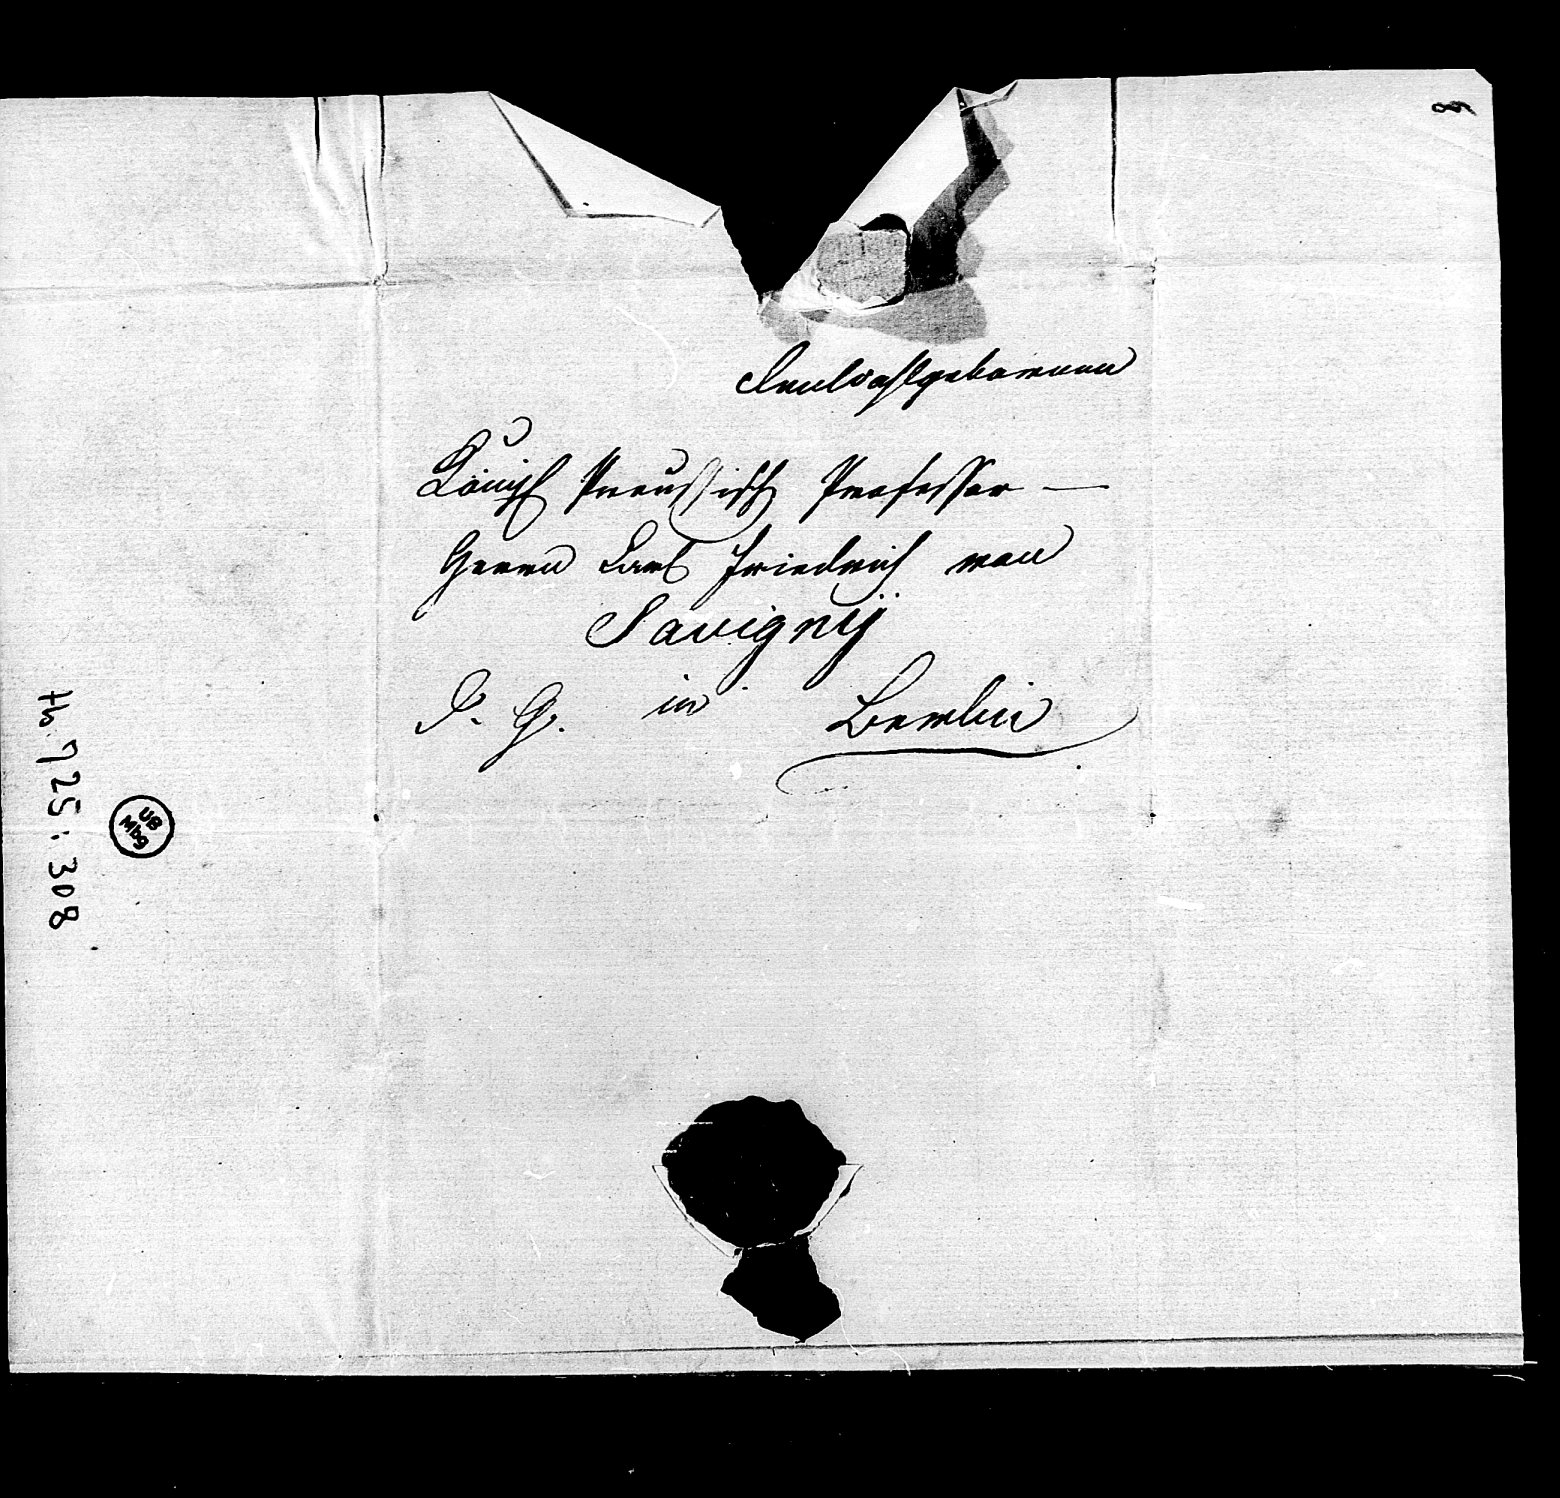 8
Königl Preußisch Professor —
Herrn Carl Friedrich von
Savignÿ
D. G. in Berlin
Hs 725:308
UB
Mbg